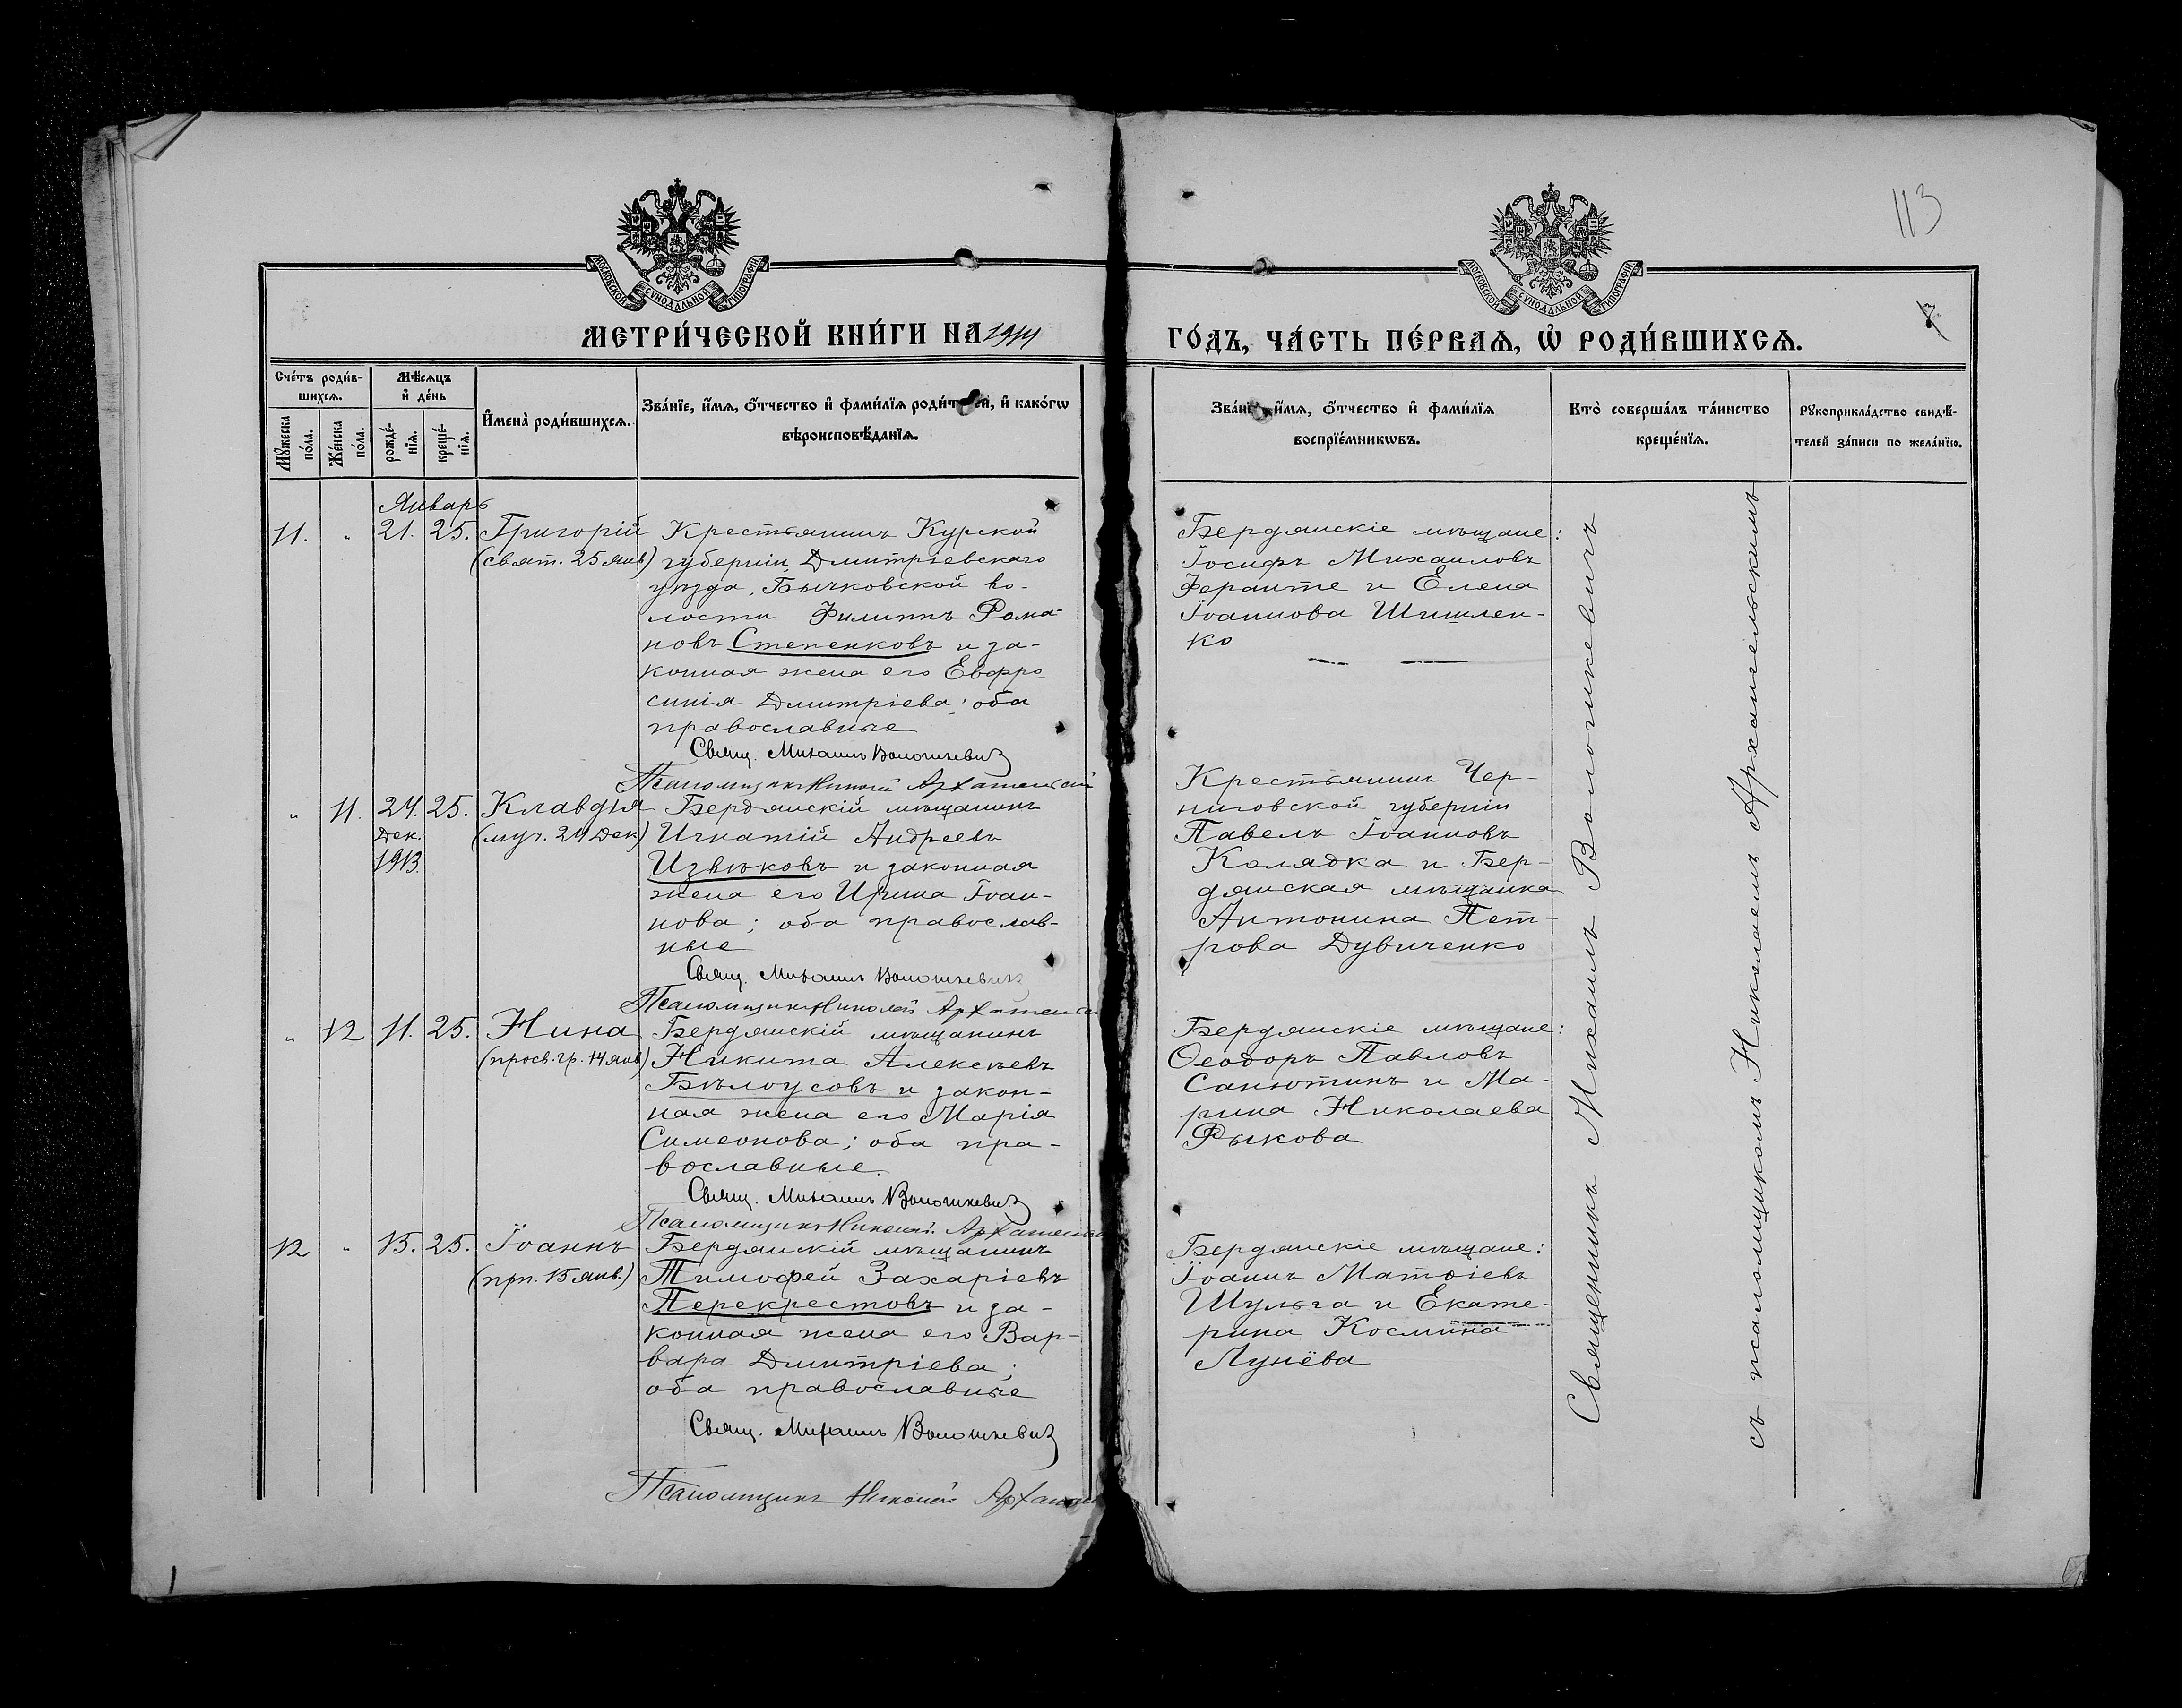 113
7
МОСКОВСКОЙ СѴНОДАЛЬНОЙ ТИПОГРАФІИ
МОСКОВСКОЙ СѴНОДАЛЬНОЙ ТИПОГРАФІИ
МЕТРИ́ЧЕСКОЙ КНИ́ГИ НА 1914
ГО́ДЪ, ЧА́СТЬ ПЕ́РВАѦ, Ѽ РОДИ́ВШИХСѦ.
Сче́тъ роди́в-
шихсѧ.
Мꙋжеска
по́ла.
Же́нска
по́ла.
Мѣ́сѧцъ
и҆ де́нь
рожде́-
нїѧ.
креще́-
нїѧ.
И҆мена̀ роди́вшихсѧ.
Зва́нїе, и҆́мѧ, ѻ҆́тчество и҆ фами́лїѧ роди́телей, и҆ како́гѡ
вѣроисповѣ́данїѧ.
Зва́нїе, и҆́мѧ, ѻ҆́тчество и҆ фами́лїѧ
воспрїе́мникѡвъ.
Кто̀ соверша́лъ та́инство
креще́нїѧ.
Рꙋкоприкла́дство свидѣ́-
телей за́писи по жела́нїю.
Январь
11. " 21. 25. Григорій
(свят. 25 янв)
Крестьянинъ Курской
губерніи, Дмитріевскаго
уѣзда, Бычковской во-
лости Филиппъ Рома-
новъ Степенковъ и за-
конная жена его Евфро-
синія Дмитріева; оба
православные
Свящ. Михаилъ Волошкевич
Псаломщикъ Николай Архангельский
Бердянскіе мѣщане:
Іосифъ Михаиловъ
Феранте и Елена
Іоаннова Шишлен-
ко
" 11. 24. 25. Клавдія
Дек.
1913.
(муч. 24 Дек)
Бердянскій мѣщанинъ
Игнатій Андреевъ
Извѣковъ и законная
жена его Ирина Іоан-
нова; оба православ-
ные
Свящ. Михаилъ Волошкевичъ
Псаломщикъ Николай Архангельс
Крестьянинъ Чер-
ниговской губерніи
Павелъ Іоанновъ
Колядка и Бер-
дянская мѣщанка
Антонина Пет-
рова Дувиченко
" 12 11. 25. Нина
(просв. гр. 14 янв)
Бердянскій мѣщанинъ
Никита Алексѣевъ
Бѣлоусовъ и закон-
ная жена его Марія
Симеонова; оба пра-
вославные.
Свящ. Михаилъ Волошкевич
Псаломщикъ Николай Архангельс
Бердянскіе мѣщане:
Ѳеодоръ Павловъ
Санютинъ и Ма-
рина Николаева
Рыкова
12 " 15. 25. Іоаннъ
(прп. 15 янв.)
Бердянскій мѣщанинъ
Тимофей Захаріевъ
Перекрестовъ и за-
конная жена его Вар-
вара Дмитріева;
оба православные
Свящ. Михаилъ Волошкевич
Псаломщикъ Николай Арханг
Бердянскіе мѣщане:
Іоаннъ Матѳіевъ
Шульга и Екате-
рина Космина
Лунёва
Священникъ Михаилъ Волошкевичъ
съ псаломщикомъ Николаемъ Архангельскимъ